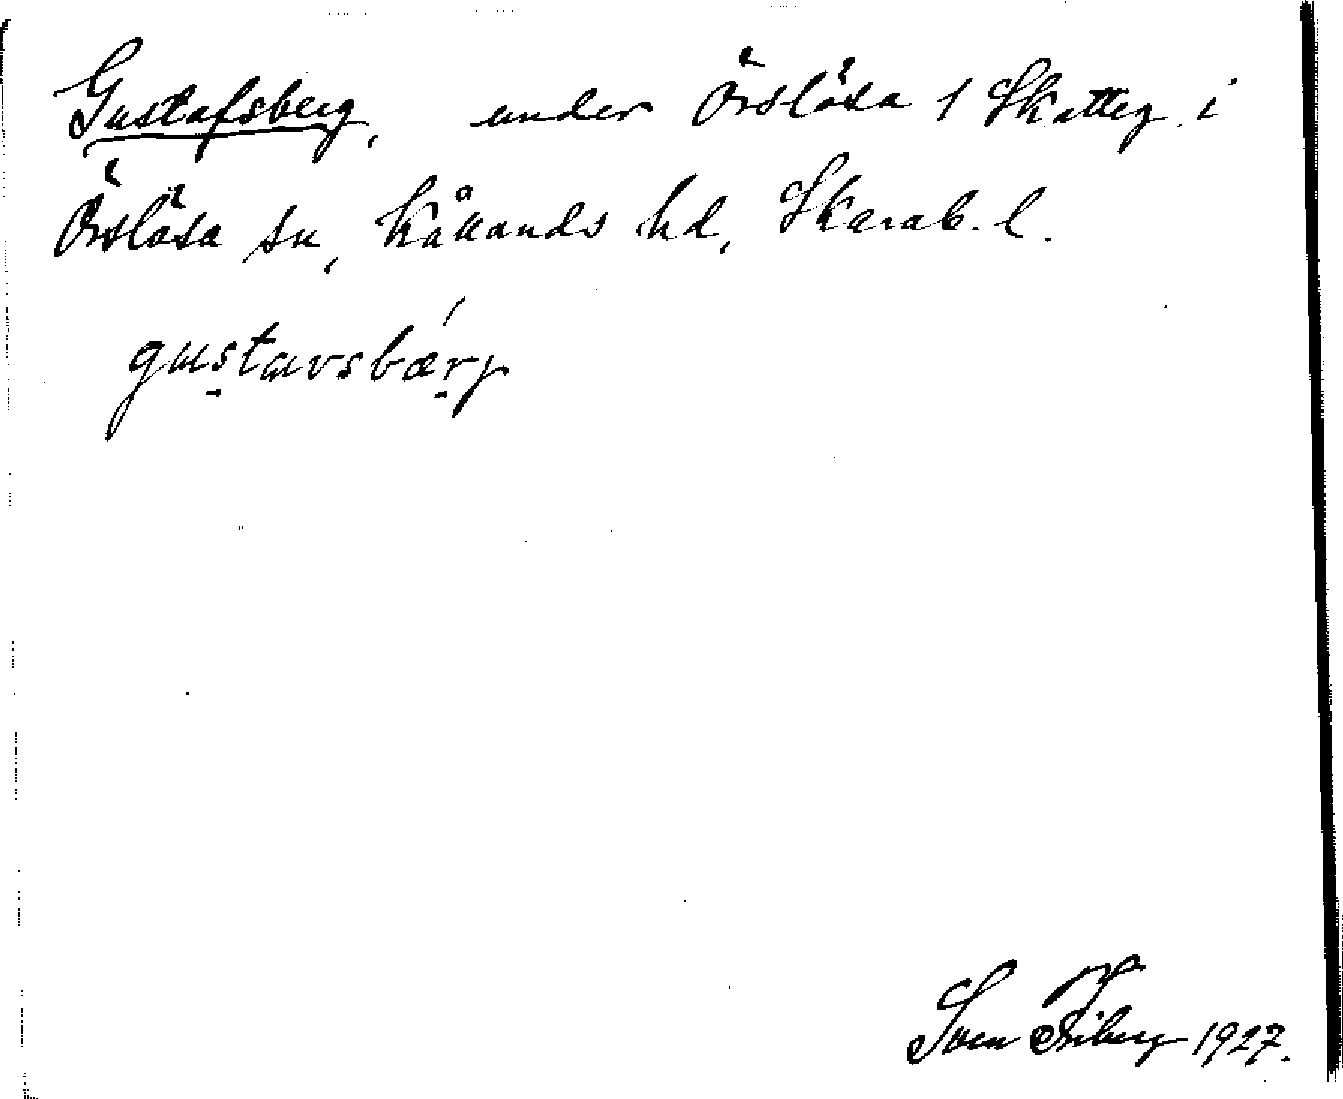 Gustafsberg, under Örslösa 1 Skatteg. i
Örslösa sn, Kållands hd, Skarab. l.
gustavsbærj
Sven Friberg 1927.